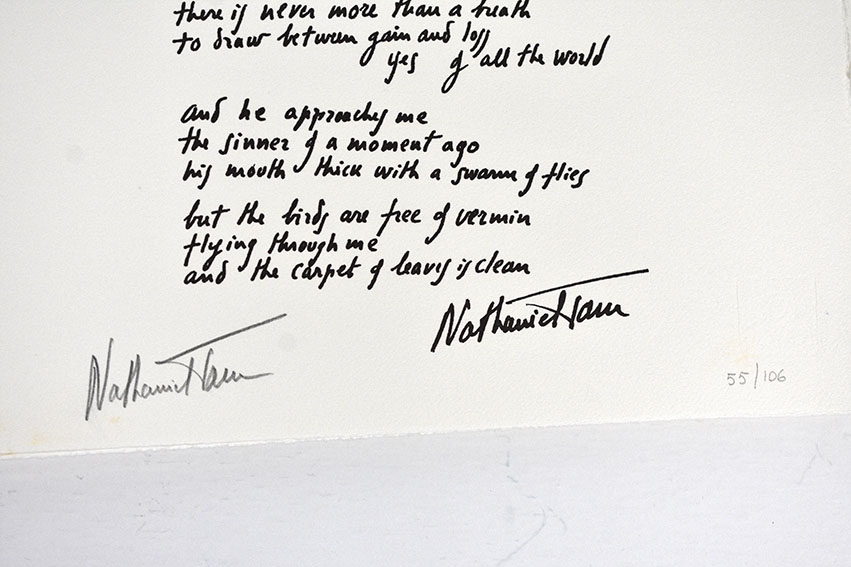 there is never more than a breath
to draw between gain and loss
yes of all the world
and he approaches me
the sinner of a moment ago
his mouth thick with a swarm of flies
but the birds are free of vermin
flying through me
and the carpet of leaves is clean
Nathaniel Tarn
Nathaniel Tarn
55/106